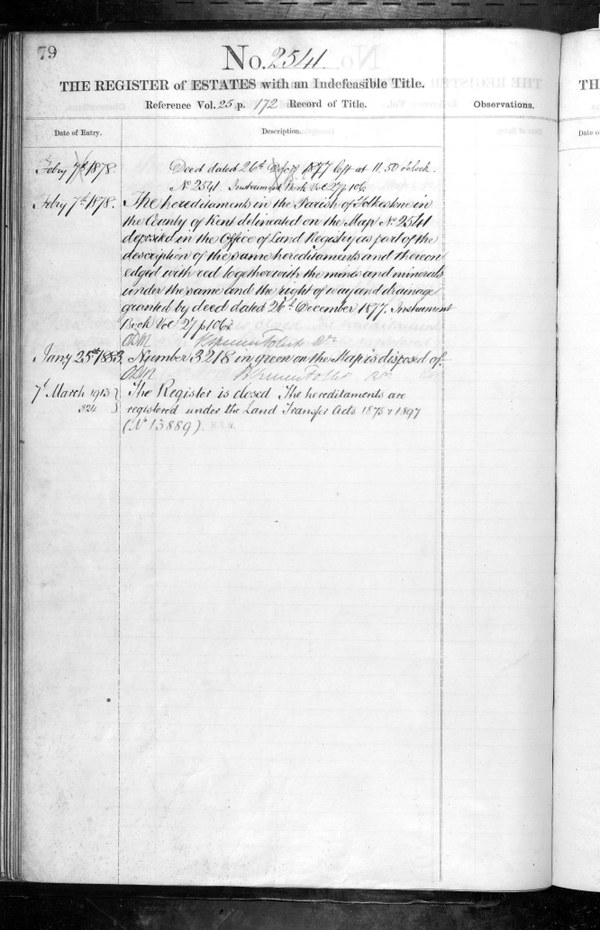 79
No. 2541
THE REGISTER of ESTATES with an Indefeasible Title.
Reference Vol. 25 p. 172 Record of Title.
Observations.
Date of Entry.
Description.
Feby 7th 1878. Deed dated 26th 1877 left at 11.50 o'clock.
No 2541. Instrument Book Vol 27 p 106
Feby 7th 1878. The hereditaments in the Parish of Folkestone in
the County of Kent delineated on the Map No 2541
deposited in the Office of Land Registry as part of the
description of the same hereditaments and thereon
edged with red together with the mines and minerals
under the same and the right of way and drainage
granted by deed dated 26th December 1877. Instrument
Book Vol 27 p 106
Jany 25th 1883. Number 3218 in green on the Map is disposed of.
7th March 1913 The Register is closed The hereditaments are
registered under the Land Transfer Acts 1875 & 1897
(No 13889).
TH
Date o